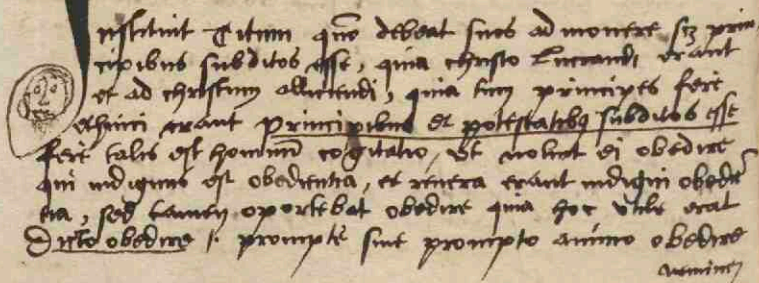 Instituit Titum quo debeat suos admonere scz prin-
cipibus subditos esse, quia christo lucrandi erant
et ad christum alliciendi, quia tum principes fere
ethnici erant principibus et potestatibus subditos esse
fere talis est hominu cogitatio, ut nolint ei obedire
qui indignus est obedientia, et revera erant indigni obedie
tia, sed tamen oportebat obedire quia hoc utile erat
Dicto obedire .i. prompte sine prompto animo obedire
neminem